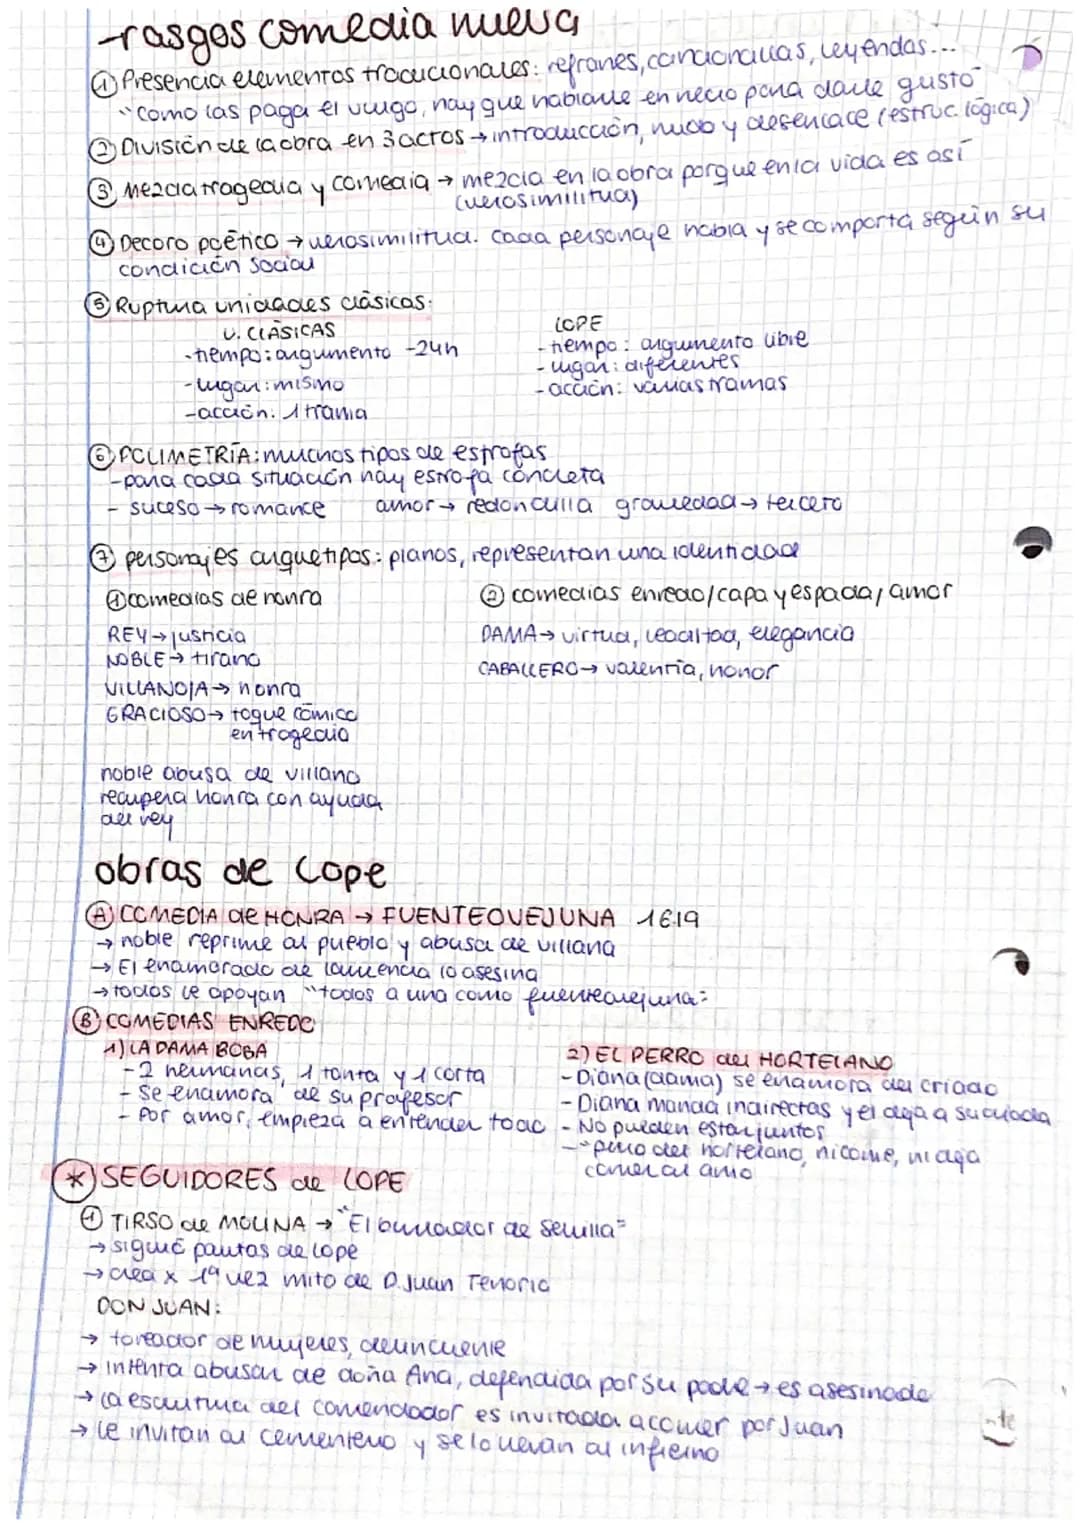 -rasgos comedia nueva
① Presencia elementos tradicionales: refranes, cancioncillas, leyendas...
"Como las paga el vulgo, hay que hablarle en necio para darle gusto"
② División de la obra en 3 actos → introducción, nudo y desenlace (estruc. lógica)
③ Mezcla tragedia y comedia → mezcla en la obra porque en la vida es así
(verosimilitud)
④ Decoro poético → verosimilitud. Cada personaje habla y se comporta según su
condición social
⑤ Ruptura unidades clásicas:
U. CLÁSICAS
-tiempo: argumento -24h
-lugar: mismo
-acción: 1 trama
LOPE
-tiempo: argumento libre
-lugar: diferentes
-acción: varias tramas
⑥ POLIMETRÍA: muchos tipos de estrofas
-para cada situación hay estrofa concreta
- suceso → romance amor → redondilla gravedad → terceto
⑦ personajes arquetipos: planos, representan una identidad
① comedias de honra
REY → justicia
NOBLE → tirano
VILLANO/A → honra
GRACIOSO → toque cómico
en tragedia
noble abusa de villano
recupera honra con ayuda
del rey
② comedias enredo/capa y espada/amor
DAMA → virtud, lealtad, elegancia
CABALLERO → valentía, honor
obras de Lope
Ⓐ COMEDIA de HONRA → FUENTEOVEJUNA 1619
→ noble reprime al pueblo y abusa de villana
→ El enamorado de laurencia lo asesina
→ todos le apoyan "todos a una como fuenteovejuna"
Ⓑ COMEDIAS ENREDO
1) LA DAMA BOBA
-2 hermanas, 1 tonta y 1 corta
- Se enamora de su profesor
- Por amor, empieza a entender todo
2) EL PERRO del HORTELANO
-Diana (dama) se enamora del criado
-Diana manda indirectas y él deja a su criada
-No pueden estar juntos
-"perro del hortelano, ni come, ni deja
comer al amo
* SEGUIDORES de LOPE
① TIRSO de MOLINA → "El burlador de Sevilla"
→ siguió pautas de lope
→ crea x 1ª vez mito de D. Juan Tenorio
DON JUAN:
→ toreador de mujeres, delincuente
→ intenta abusar de doña Ana, defendida por su padre → es asesinado
→ la escultura del comendador es invitada a comer por Juan
→ le invitan al cementerio y se lo llevan al infierno